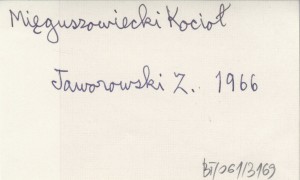 Mięguszowiecki Kocioł
Jaworowski Z. 1966
BT/261/3169